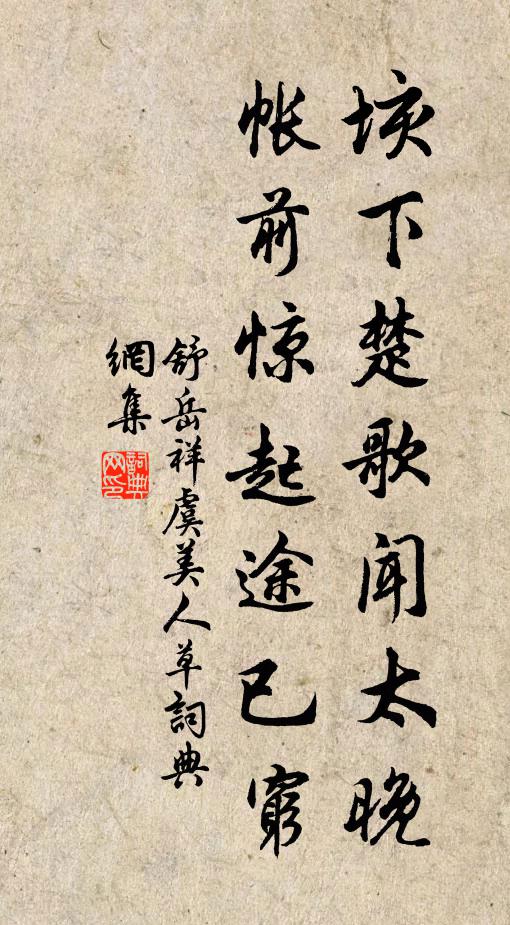 垓下楚歌闻太晚
帐前惊起途已窮
舒岳祥虞美人草詞典
網集
詞典
网印